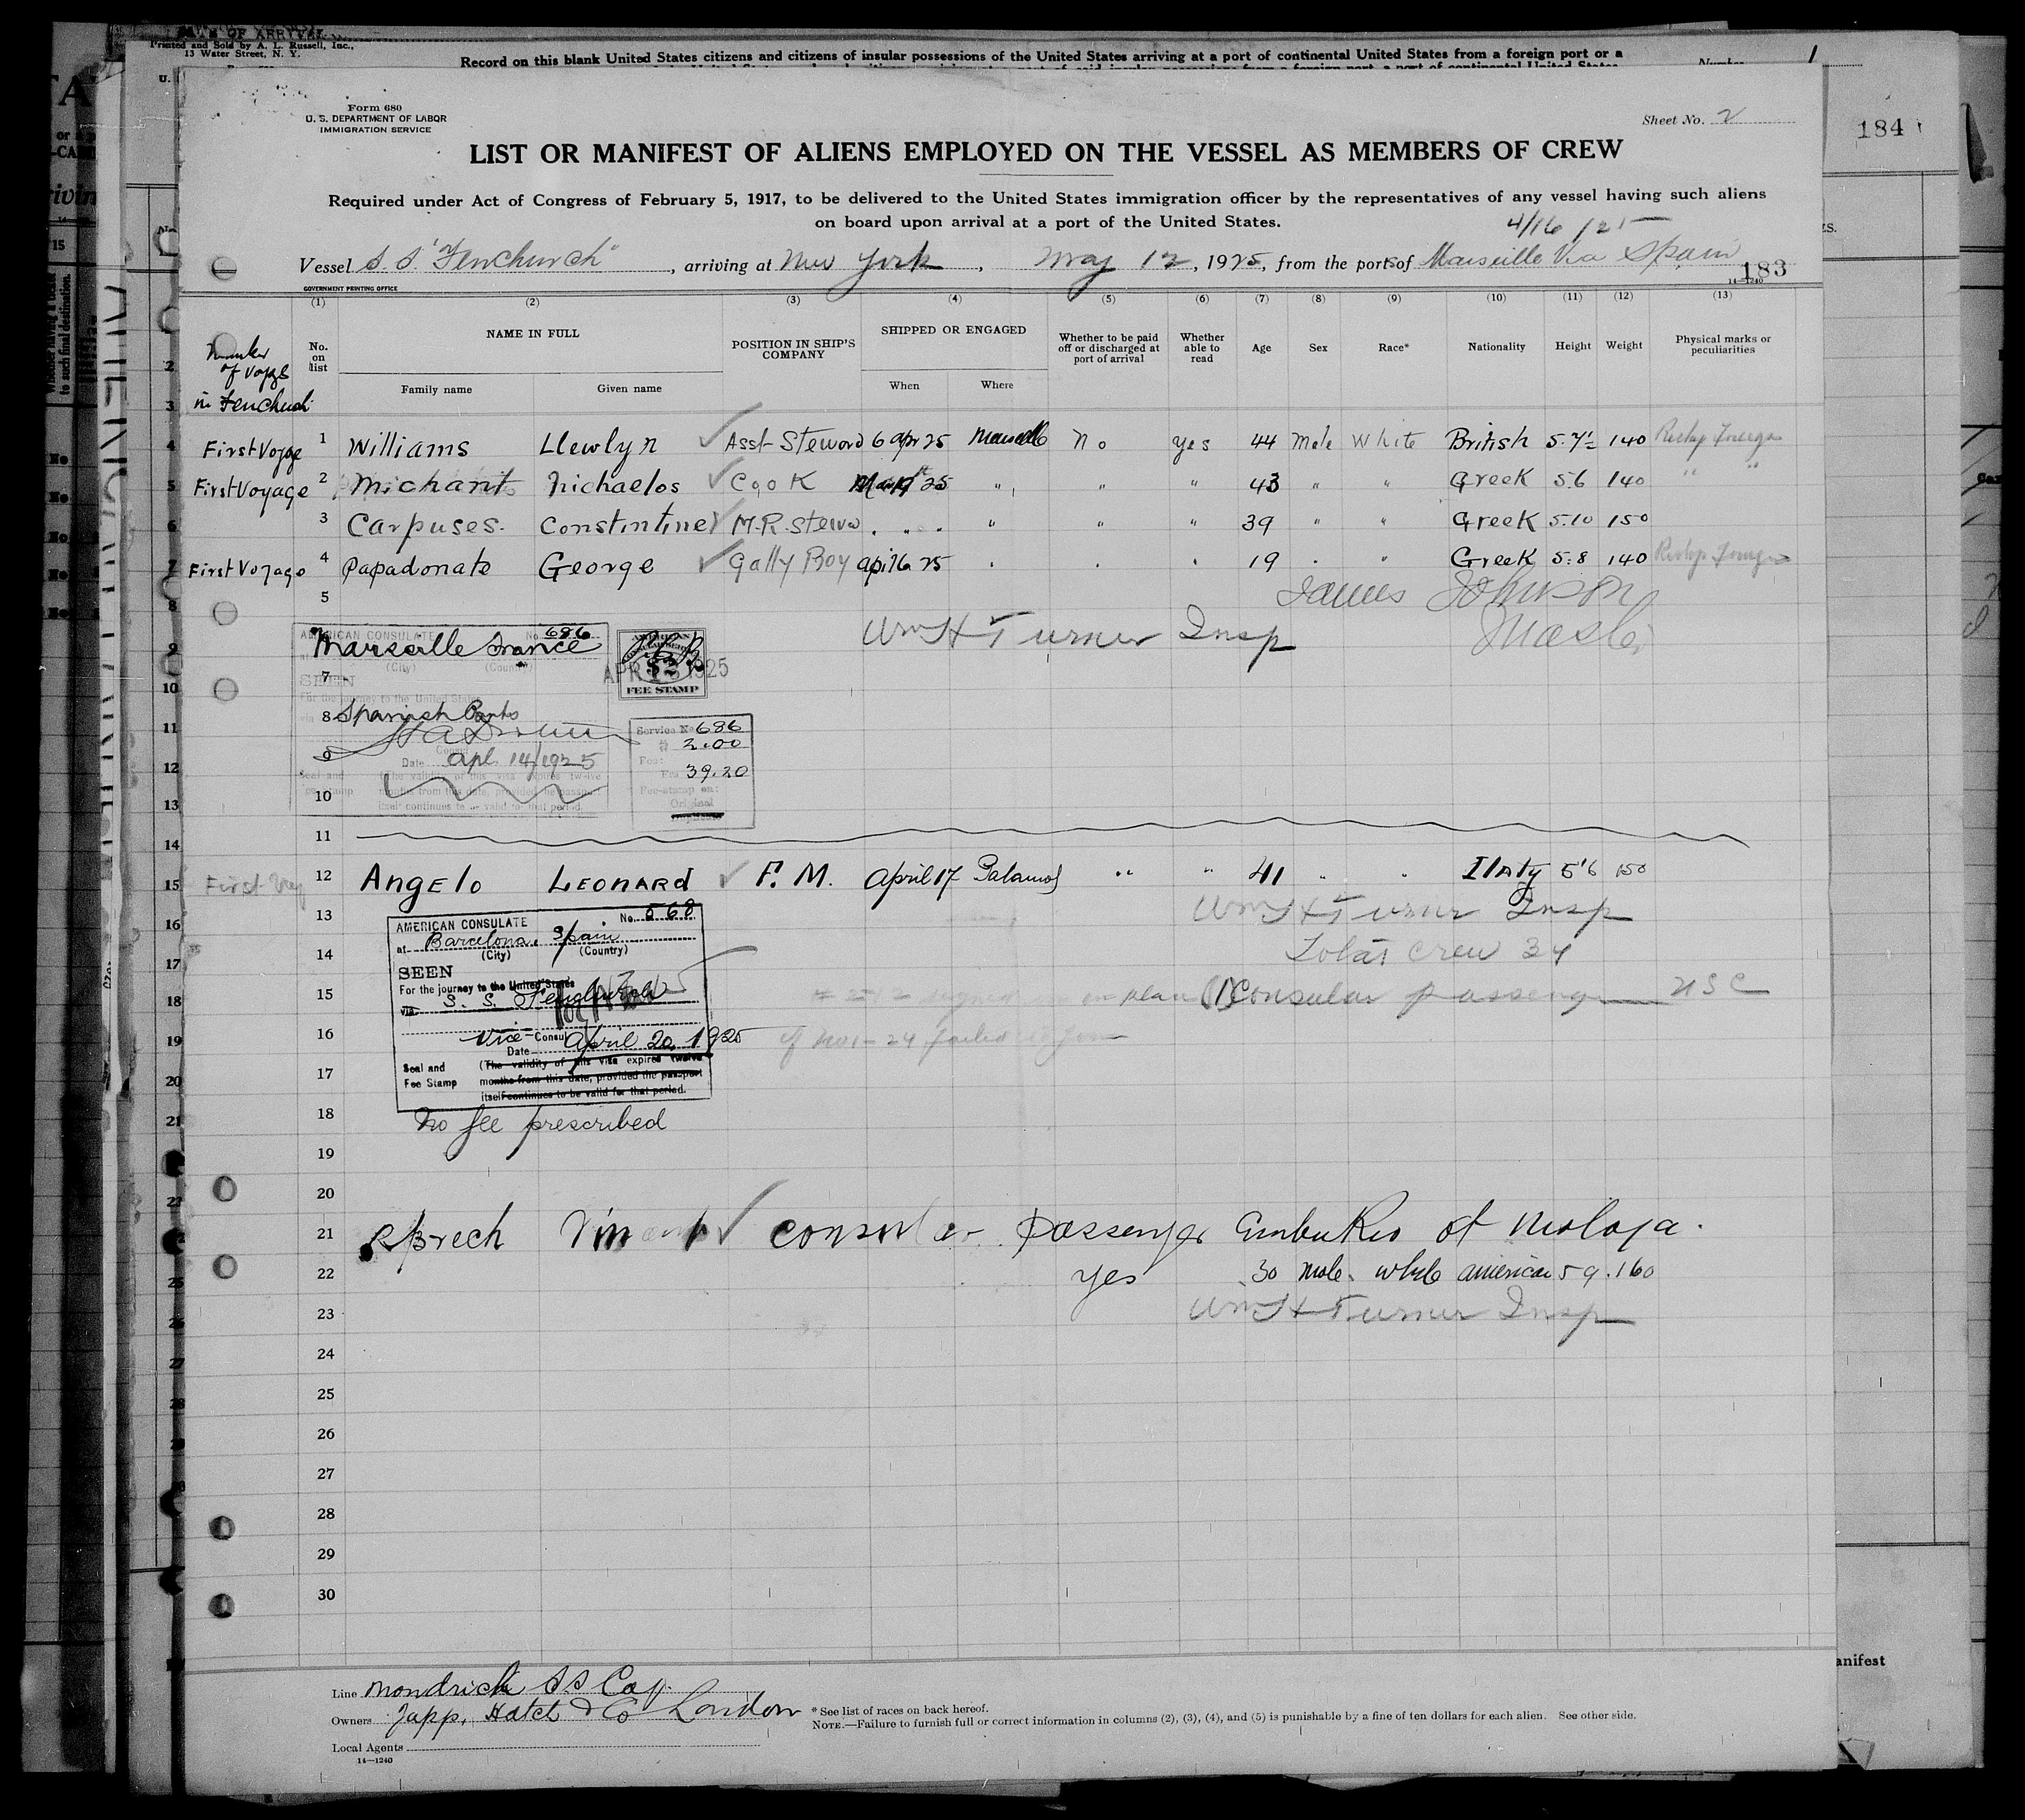 DATE OF ARRIVAL
Printed and Sold by A. L. Russell, Inc.,
13 Water Street, N. Y.
Record on this blank United States citizens and citizens of insular possessions of the United States arriving at a port of continental United States from a foreign port or a
Number 1
184
Form 680
U. S. DEPARTMENT OF LABOR
IMMIGRATION SERVICE
Sheet No. 2
LIST OR MANIFEST OF ALIENS EMPLOYED ON THE VESSEL AS MEMBERS OF CREW
Required under Act of Congress of February 5, 1917, to be delivered to the United States immigration officer by the representatives of any vessel having such aliens
on board upon arrival at a port of the United States.
4/16/25
Vessel S. S. "Fenchurch", arriving at New York, May 12, 1925, from the ports of Marseille Via Spain
183
GOVERNMENT PRINTING OFFICE
14—1240
(1) (2) (3) (4) (5) (6) (7) (8) (9) (10) (11) (12) (13)
Number of Voyage in Fenchurch
No. on list
NAME IN FULL
Family name Given name
POSITION IN SHIP'S COMPANY
SHIPPED OR ENGAGED
When Where
Whether to be paid off or discharged at port of arrival
Whether able to read
Age Sex Race* Nationality Height Weight
Physical marks or peculiarities
First Voyage 1 Williams Llewlyn Asst Steword 6 apr 25 Marseille No yes 44 Male White British 5.7½ 140
First Voyage 2 Michanit Nichaelos Cook 25 " " " 43 " " Greek 5 6 140 " "
3 Carpuses Constintine M.R. Stewa " " " " 39 " " Greek 5.10 150
First Voyage 4 Papadonato George Gally Boy april 16 25 " " " 19 " " Greek 5.8 140
5
James Johnson
Master
Wm H Turner Insp
AMERICAN CONSULATE No. 686
Marseille France
(City) (Country)
7
SEEN
For the journey to the United States
8 Spanish Ports
9
Date Apl. 14/1925
10
AMERICAN
$2
FEE STAMP
APR 1925
Service No. 686
$ 2.00
Fee:
Frs 39.20
Fee-stamp on:
Original
11
First Voy 12 Angelo Leonard F. M. April 17 Palamos " " 41 " " Italy 5'6 150
Wm H Turner Insp
Total Crew 34
(1) Consular passenger USC
13
AMERICAN CONSULATE No. 568
at Barcelona, Spain
(City) (Country)
14
SEEN
For the journey to the United States
15
via S. S. Fenchurch
16
Vice-Consul
Date April 20, 1925
Seal and Fee Stamp
(The validity of this visa expires twelve
17
months from this date, provided the passport
itself continues to be valid for that period.
18
No fee prescribed
19
20
21 Sprech Vincent consular passenger Embarked at Malaga.
22 yes 30 male. white american 5 9. 160
23 Wm H Turner Insp
24
25
26
27
28
29
30
Line Mondrich S S Coy.
Owners Japp, Hatch & Co London
Local Agents
14—1240
* See list of races on back hereof.
NOTE.—Failure to furnish full or correct information in columns (2), (3), (4), and (5) is punishable by a fine of ten dollars for each alien. See other side.
anifest